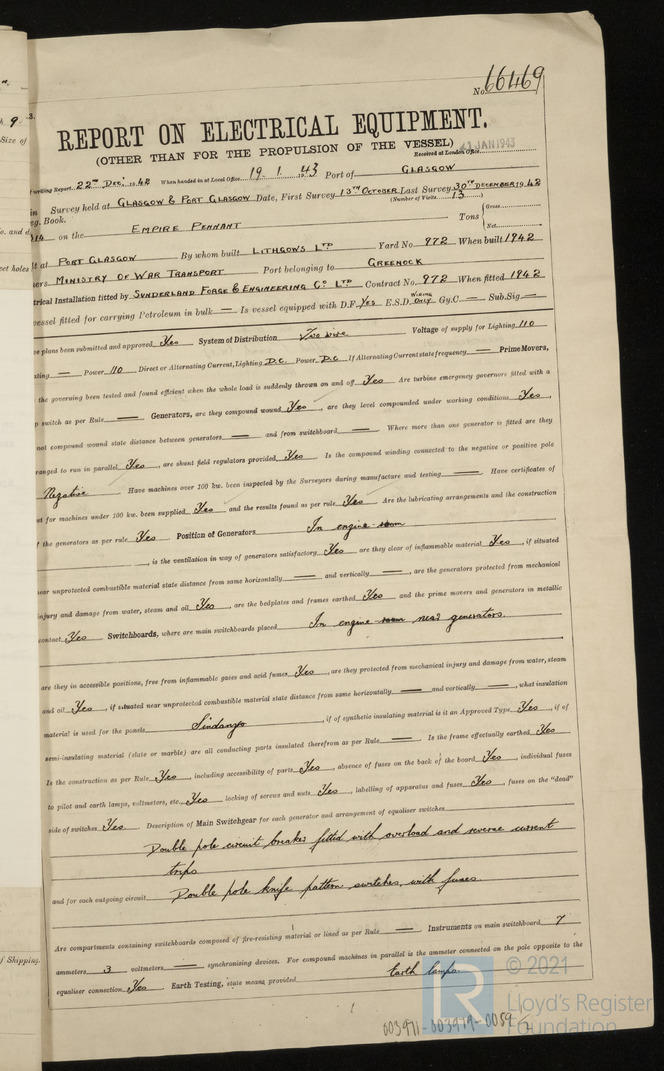 No. 66469
REPORT ON ELECTRICAL EQUIPMENT.
(OTHER THAN FOR THE PROPULSION OF THE VESSEL)
Received at London Office 21 JAN 1943
writing Report 22nd Decr 1942 When handed in at Local Office 19. 1. 1943 Port of GLASGOW
Survey held at GLASGOW & PORT GLASGOW Date, First Survey 13TH OCTOBER Last Survey 30TH DECEMBER 1942
Book. (Number of Visits 13)
on the EMPIRE PENNANT Tons { Gross Net
at PORT GLASGOW By whom built LITHGOWS LTD Yard No. 972 When built 1942
MINISTRY OF WAR TRANSPORT Port belonging to GREENOCK
trical Installation fitted by SUNDERLAND FORGE & ENGINEERING CO LTD Contract No. 972 When fitted 1942
vessel fitted for carrying Petroleum in bulk — Is vessel equipped with D.F. Yes E.S.D. WIRING ONLY Gy.C. — Sub.Sig. —
plans been submitted and approved Yes System of Distribution Two wire Voltage of supply for Lighting 110
ting — Power 110 Direct or Alternating Current, Lighting D.C. Power D.C. If Alternating Current state frequency — Prime Movers,
the governing been tested and found efficient when the whole load is suddenly thrown on and off Yes Are turbine emergency governors fitted with a
switch as per Rule — Generators, are they compound wound Yes, are they level compounded under working conditions Yes,
not compound wound state distance between generators — and from switchboard — Where more than one generator is fitted are they
ranged to run in parallel Yes, are shunt field regulators provided Yes Is the compound winding connected to the negative or positive pole
Negative Have machines over 100 kw. been inspected by the Surveyors during manufacture and testing — Have certificates of
for machines under 100 kw. been supplied Yes and the results found as per rule Yes Are the lubricating arrangements and the construction
of the generators as per rule Yes Position of Generators In engine room
, is the ventilation in way of generators satisfactory Yes are they clear of inflammable material Yes, if situated
near unprotected combustible material state distance from same horizontally — and vertically —, are the generators protected from mechanical
injury and damage from water, steam and oil Yes, are the bedplates and frames earthed Yes and the prime movers and generators in metallic
contact Yes Switchboards, where are main switchboards placed In engine room near generators.
are they in accessible positions, free from inflammable gases and acid fumes Yes, are they protected from mechanical injury and damage from water, steam
and oil Yes, if situated near unprotected combustible material state distance from same horizontally — and vertically —, what insulation
material is used for the panels Sindanyo, if of synthetic insulating material is it an Approved Type Yes, if of
semi-insulating material (slate or marble) are all conducting parts insulated therefrom as per Rule — Is the frame effectually earthed Yes
Is the construction as per Rule Yes, including accessibility of parts Yes, absence of fuses on the back of the board Yes, individual fuses
to pilot and earth lamps, voltmeters, etc. Yes locking of screws and nuts Yes, labelling of apparatus and fuses Yes, fuses on the "dead"
side of switches Yes Description of Main Switchgear for each generator and arrangement of equaliser switches
Double pole circuit breaker fitted with overload and reverse current
trips
and for each outgoing circuit Double pole knife pattern switches, with fuses.
Are compartments containing switchboards composed of fire-resisting material or lined as per Rule — Instruments on main switchboard 7
ammeters 3 voltmeters — synchronising devices. For compound machines in parallel is the ammeter connected on the pole opposite to the
equaliser connection Yes Earth Testing, state means provided Earth lamps.
© 2021
Lloyd's Register
Foundation
003971-003979-0059 1/2
Size of
of Shipping.